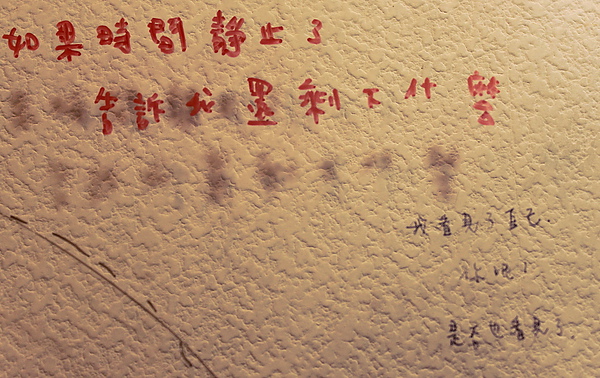 如果時間靜止了
告訴我還剩下什麼
我看見了自己.
你呢?
是否也看見了.